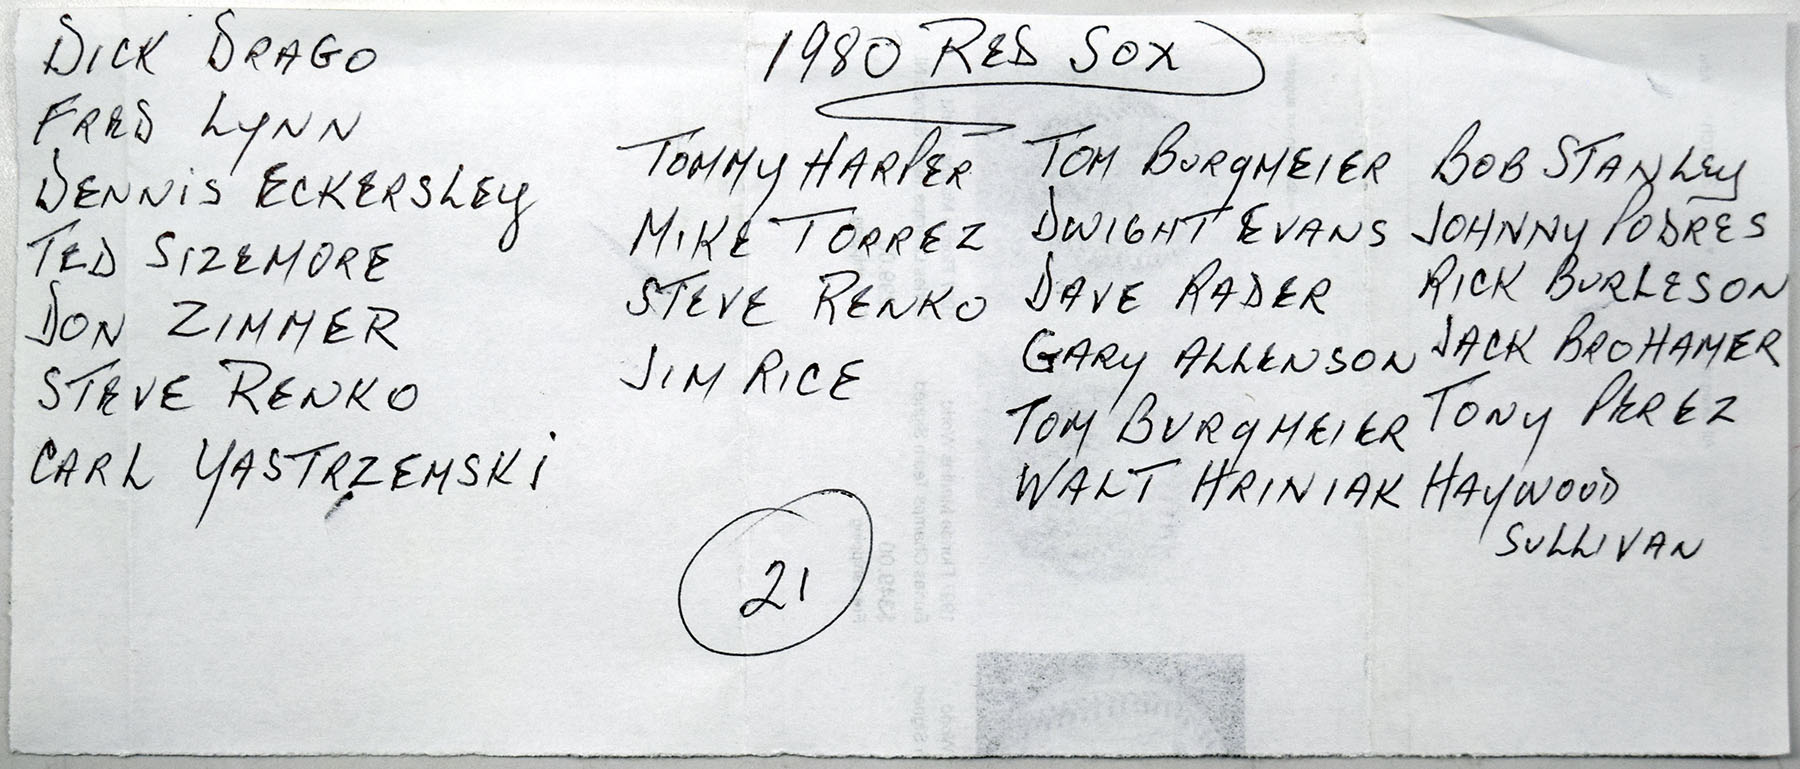 1980 RED SOX
DICK DRAGO
FRED LYNN
DENNIS ECKERSLEY
TED SIZEMORE
DON ZIMMER
STEVE RENKO
CARL YASTRZEMSKI
TOMMY HARPER
MIKE TORREZ
STEVE RENKO
JIM RICE
TOM BURGMEIER
DWIGHT EVANS
DAVE RADER
GARY ALLENSON
TOM BURGMEIER
WALT HRINIAK
BOB STANLEY
JOHNNY PODRES
RICK BURLESON
JACK BROHAMER
TONY PEREZ
HAYWOOD
SULLIVAN
21